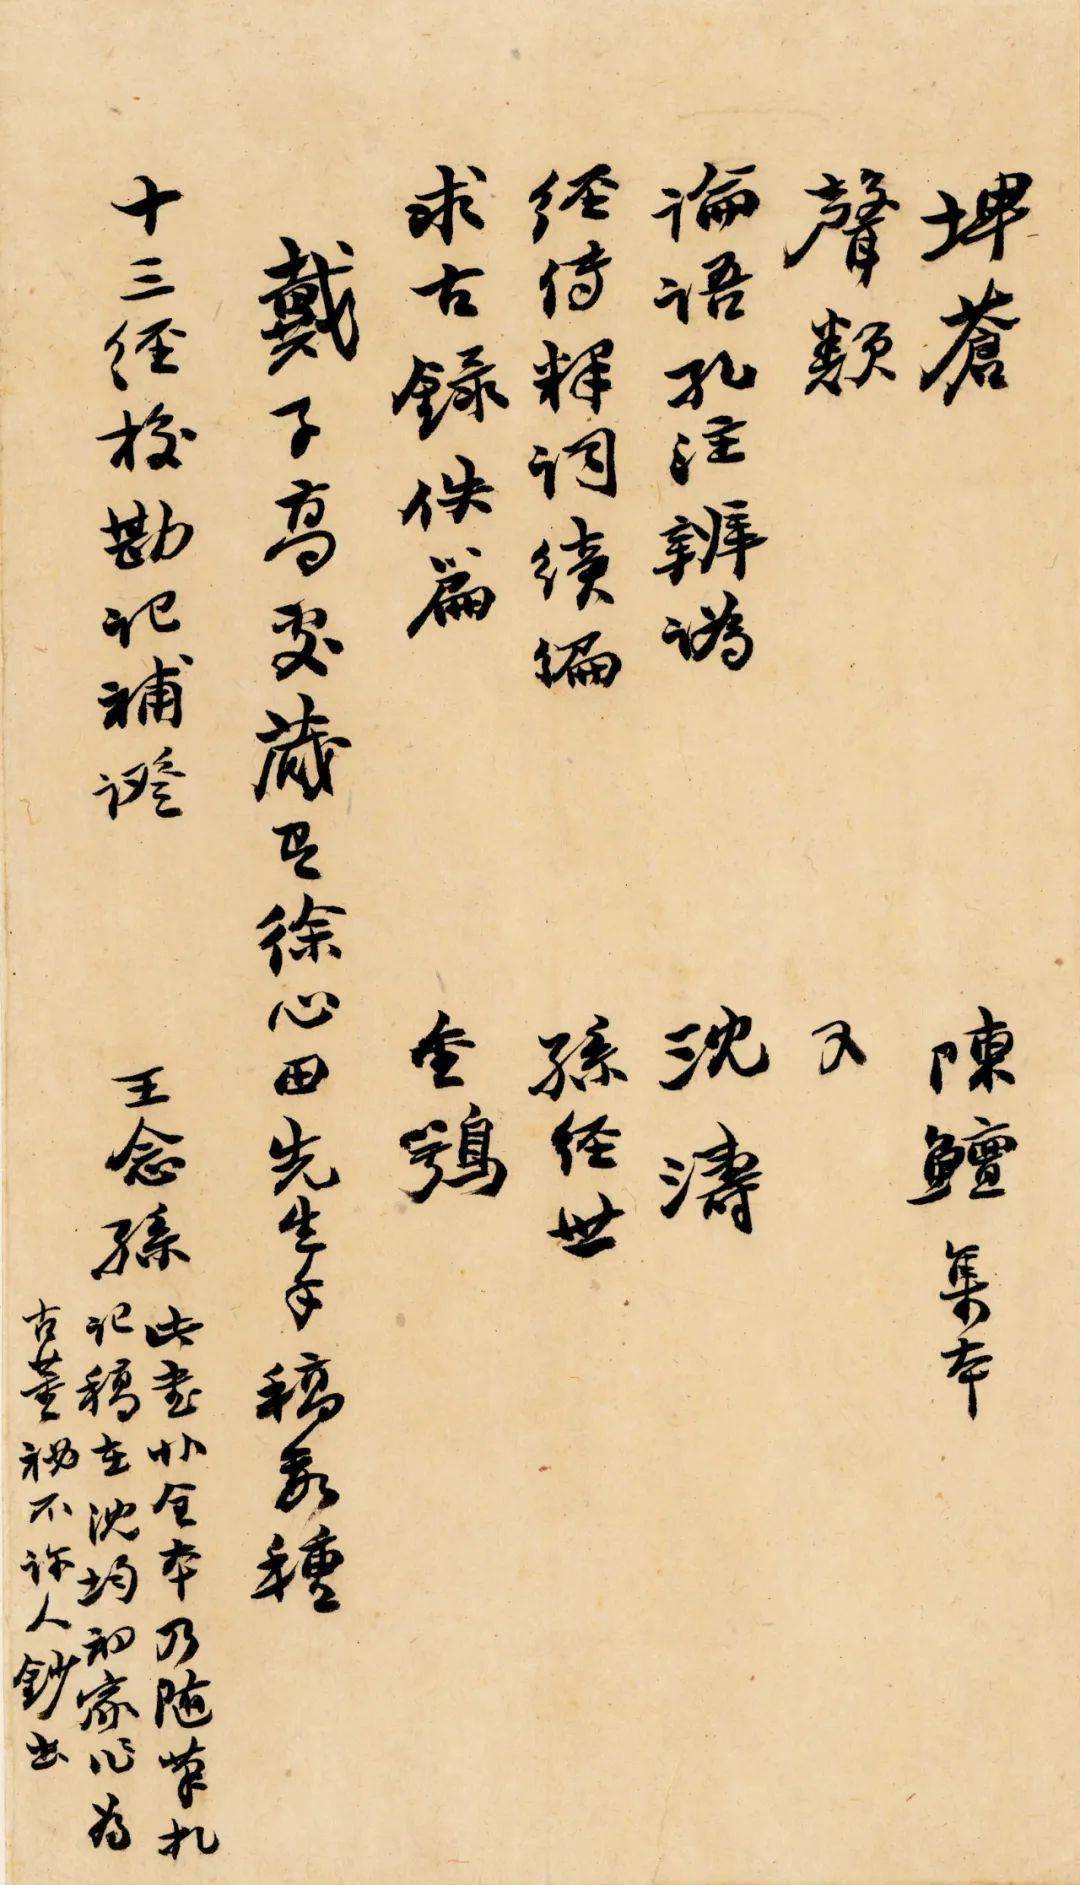 埤蒼　陳鱣集本
聲類　又
論語孔注辨譌　沈濤
經傳釋詞續編　孫經世
求古錄佚篇　金鶚
戴子高處藏有徐心田先生手稿數種
十三經校勘記補證　王念孫
此書非全本乃隨筆札
記稿在沈均初家作為
古董祕不許人鈔出